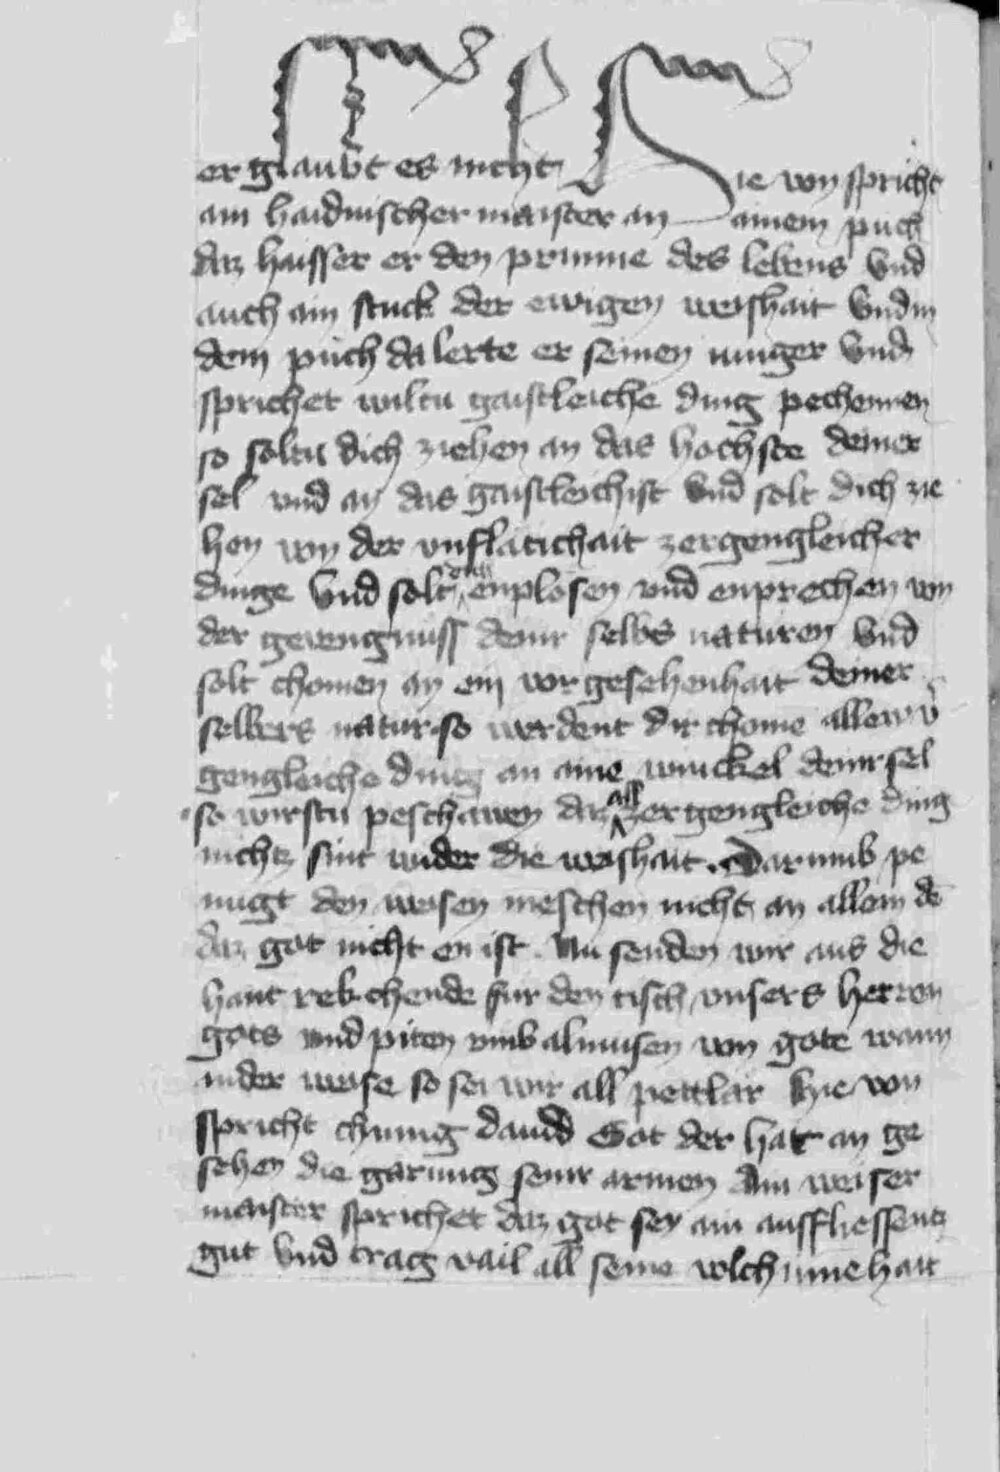 er glaubt es nicht Hie von spricht
ain haidnischer maister an ainem puch
daz haisset er den prunne des lebens vnd
auch ain stuck der ewigen weishait vnd in
dem puch da lerte er seinen iunger vnd
sprichet wiltu gaistleiche ding pechennen
so soltu dich ziehen an das hochste deiner
sel vnd an das gaistleichist vnd solt dich zie
hen von der vnflatichait zergengleicher
dinge vnd solt enplosen vnd enprechen von
der gevengnuss deinr selbs naturen vnd
solt chomen an ein vorgesehenhait deiner
selbers natur so werdent dir chome allew v̄
gengleiche ding an aine winckel deinr sel
so wirstu peschawen daz all zergengleiche ding
nichtz sint wider die weishait. Darumb pe
nugt den weisen meschen nicht an allem dē
daz got nicht en ist. Nu senden wir aus die
hant rekchende fur den tisch vnsers herren
gots vnd piten vmb almusen von gote wann
in der weise so sei wir all pettlar Hie von
spricht chunig dauid Got der hat an ge
sehen die garung seinr armen Ain weiser
maister sprichet daz got sey ain ausfliessentz
gut vnd trag vail all seine volchumehait